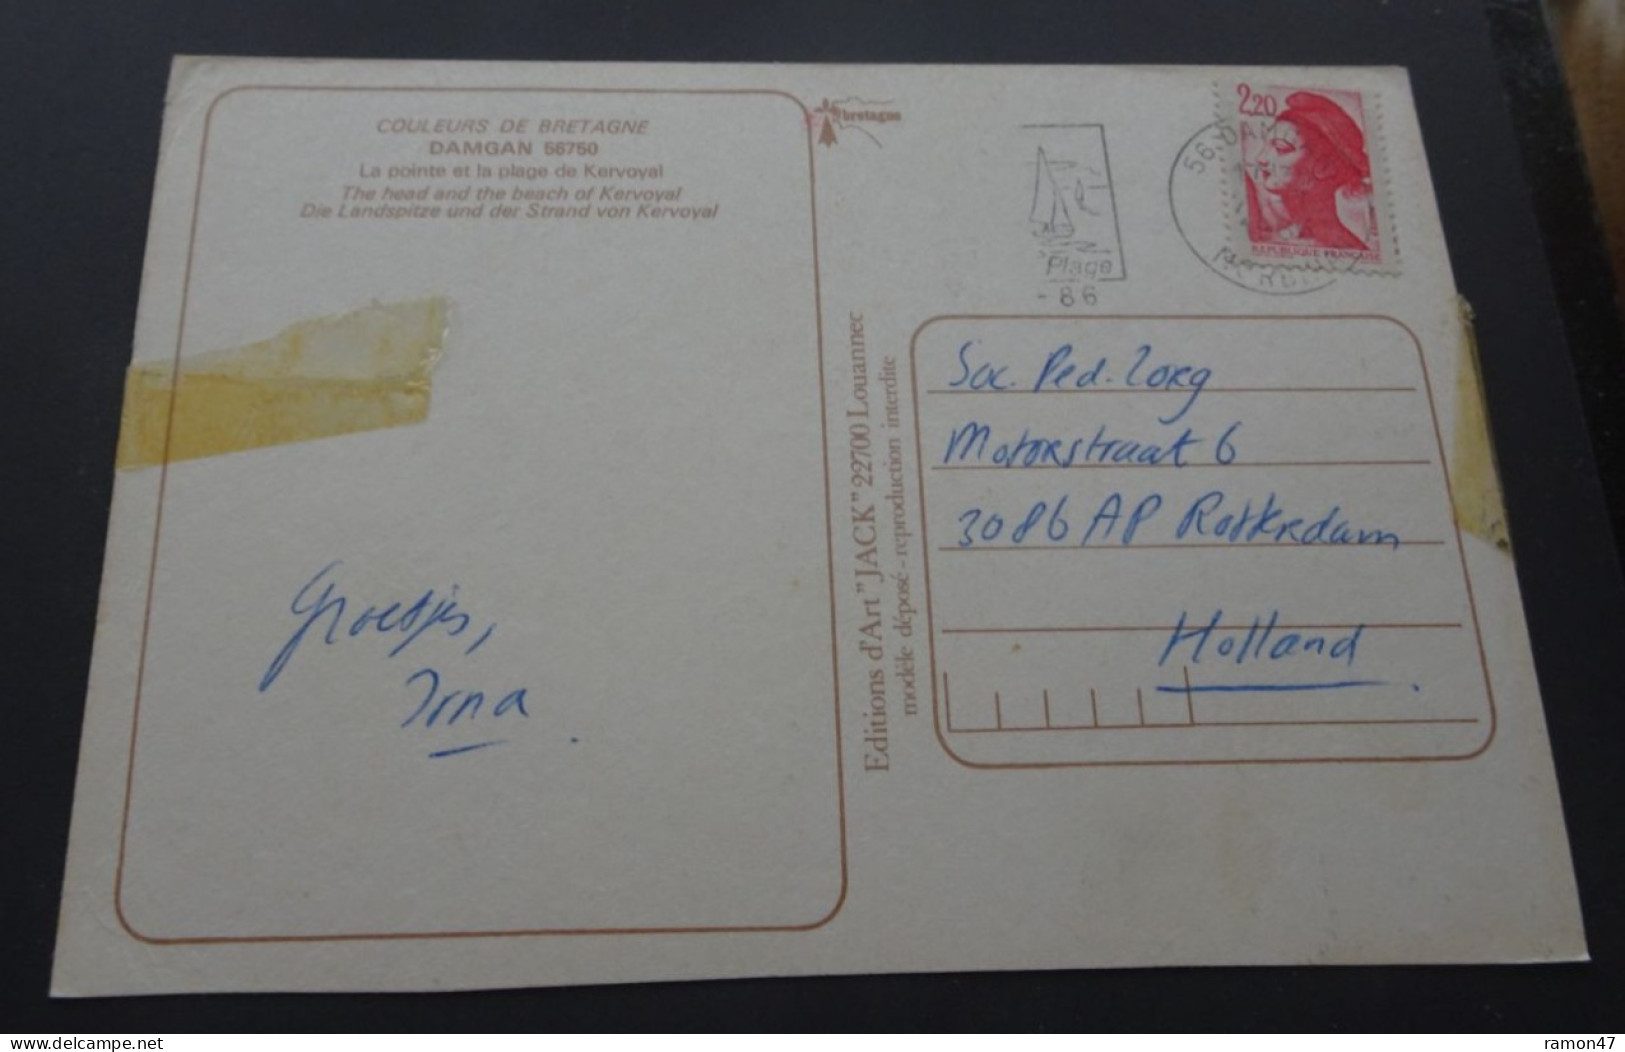 COULEURS DE BRETAGNE
DAMGAN 56750
La pointe et la plage de Kervoyal
The head and the beach of Kervoyal
Die Landspitze und der Strand von Kervoyal
Groetjes,
Irma
bretagne
Plage
86
56
2,20
REPUBLIQUE FRANÇAISE
Editions d'Art "JACK" 22700 Louannec
modèle déposé - reproduction interdite
Soc. Ped. Zorg
Motorstraat 6
3086 AP Rotterdam
Holland
delcampe.net
ramon47